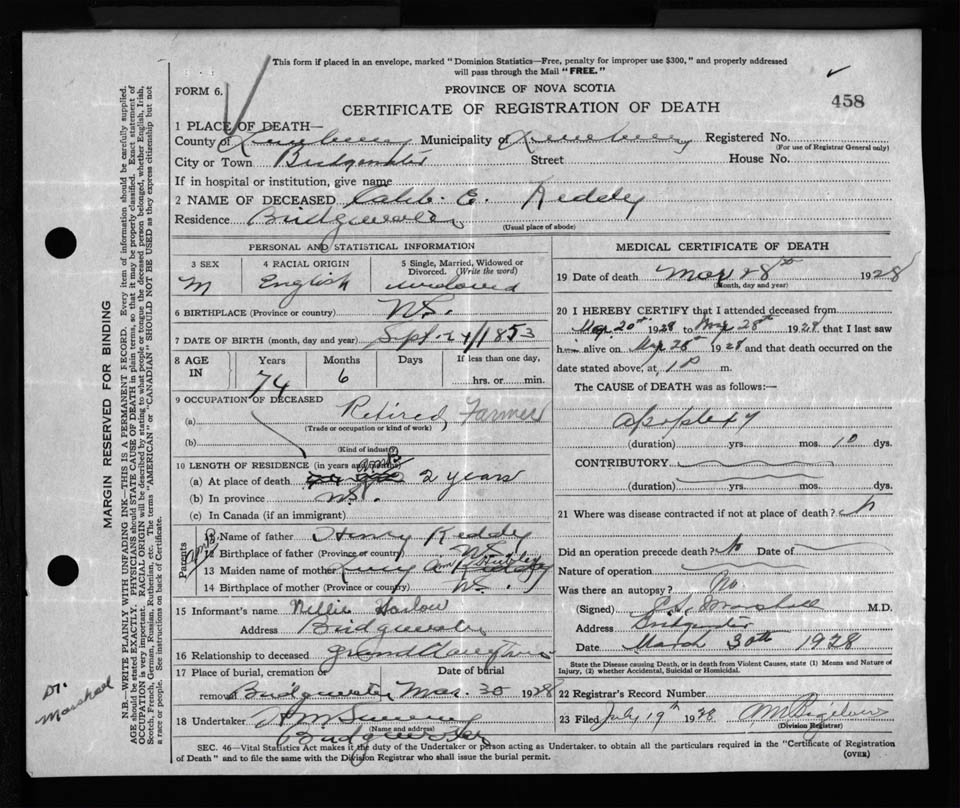 This form if placed in an envelope, marked "Dominion Statistics—Free, penalty for improper use $300," and properly addressed
will pass through the Mail "FREE."
FORM 6.
PROVINCE OF NOVA SCOTIA
458
CERTIFICATE OF REGISTRATION OF DEATH
1 PLACE OF DEATH—
County of Lunenburg Municipality of Lunenburg Registered No.
(For use of Registrar General only)
City or Town Bridgewater Street House No.
If in hospital or institution, give name
2 NAME OF DECEASED Caleb. E. Reddy
Residence Bridgewater
(Usual place of abode)
PERSONAL AND STATISTICAL INFORMATION
3 SEX 4 RACIAL ORIGIN 5 Single, Married, Widowed or Divorced. (Write the word)
M English widowed
6 BIRTHPLACE (Province or country) N.S.
7 DATE OF BIRTH (month, day and year) Sept. 24/1853
8 AGE IN Years Months Days If less than one day,
74 6 hrs. or min.
9 OCCUPATION OF DECEASED
(a) Retired, Farmer
(Trade or occupation or kind of work)
(b)
(Kind of industry)
10 LENGTH OF RESIDENCE (in years and months)
(a) At place of death 2 years
(b) In province N.S.
(c) In Canada (if an immigrant)
Parents
11 Name of father Henry Reddy
12 Birthplace of father (Province or country) N.S.
13 Maiden name of mother Lucy
14 Birthplace of mother (Province or country) N.S.
15 Informant's name Nellie Harlow
Address Bridgewater
16 Relationship to deceased
17 Place of burial, cremation or removal Bridgewater Date of burial Mar. 30 1928
18 Undertaker
(Name and address)
Bridgewater
MEDICAL CERTIFICATE OF DEATH
19 Date of death Mar 28th 1928
(Month, day and year)
20 I HEREBY CERTIFY that I attended deceased from
Mar. 20th 1928 to Mar 28th 1928 that I last saw
him alive on Mar 28th 1928 and that death occurred on the
date stated above, at 1 P m.
The CAUSE of DEATH was as follows:—
apoplexy
(duration) yrs. mos. 10 dys.
CONTRIBUTORY
(duration) yrs. mos. dys.
21 Where was disease contracted if not at place of death?
Did an operation precede death? No Date of
Nature of operation
Was there an autopsy? No
(Signed) Marshall M.D.
Address Bridgewater
Date March 30th 1928
State the Disease causing Death, or in death from Violent Causes, state (1) Means and Nature of Injury, (2) whether Accidental, Suicidal or Homicidal.
22 Registrar's Record Number
23 Filed July 19th 1928
(Division Registrar)
SEC. 46—Vital Statistics Act makes it the duty of the Undertaker or person acting as Undertaker, to obtain all the particulars required in the "Certificate of Registration
of Death" and to file the same with the Division Registrar who shall issue the burial permit.
(OVER)
MARGIN RESERVED FOR BINDING
N.B.—WRITE PLAINLY WITH UNFADING INK—THIS IS A PERMANENT RECORD. Every item of information should be carefully supplied.
AGE should be stated EXACTLY. PHYSICIANS should STATE CAUSE OF DEATH in plain terms, so that it may be properly classified. Exact statement of
OCCUPATION is very important. RACIAL ORIGIN will be described by stating to what people or tongue the deceased person belonged, whether English, Irish,
Scotch, French, German, Russian, Ruthenian, etc. The terms "AMERICAN" or "CANADIAN" SHOULD NOT BE USED as they express citizenship but not
a race or people. See instructions on back of Certificate.
Dr. Marshall